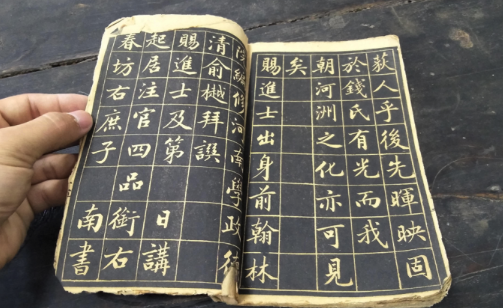 荻人乎後先暉映固
於錢氏有光而我
朝河洲之化亦可見
矣
賜進士出身前翰林
院編修河南學政德
清俞樾拜譔
賜進士及第 日講
起居注官四品銜右
春坊右庶子 南書